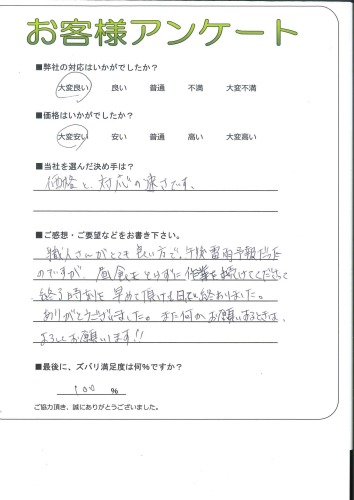 お客様アンケート
■弊社の対応はいかがでしたか？
大変良い 良い 普通 不満 大変不満
■価格はいかがでしたか？
大変安い 安い 普通 高い 大変高い
■当社を選んだ決め手は？
価格と、対応の速さです。
■ご感想・ご要望などをお書き下さい。
職人さんがとても良い方で、午後雷雨予報だった
のですが、昼食をとらずに作業を続けてくださって
終了時刻を早めて頂け1日で終わりました。
ありがとうございました。また何かお願いするときは、
よろしくお願いします!!
■最後に、ズバリ満足度は何%ですか？
100 %
ご協力頂き、誠にありがとうございました。